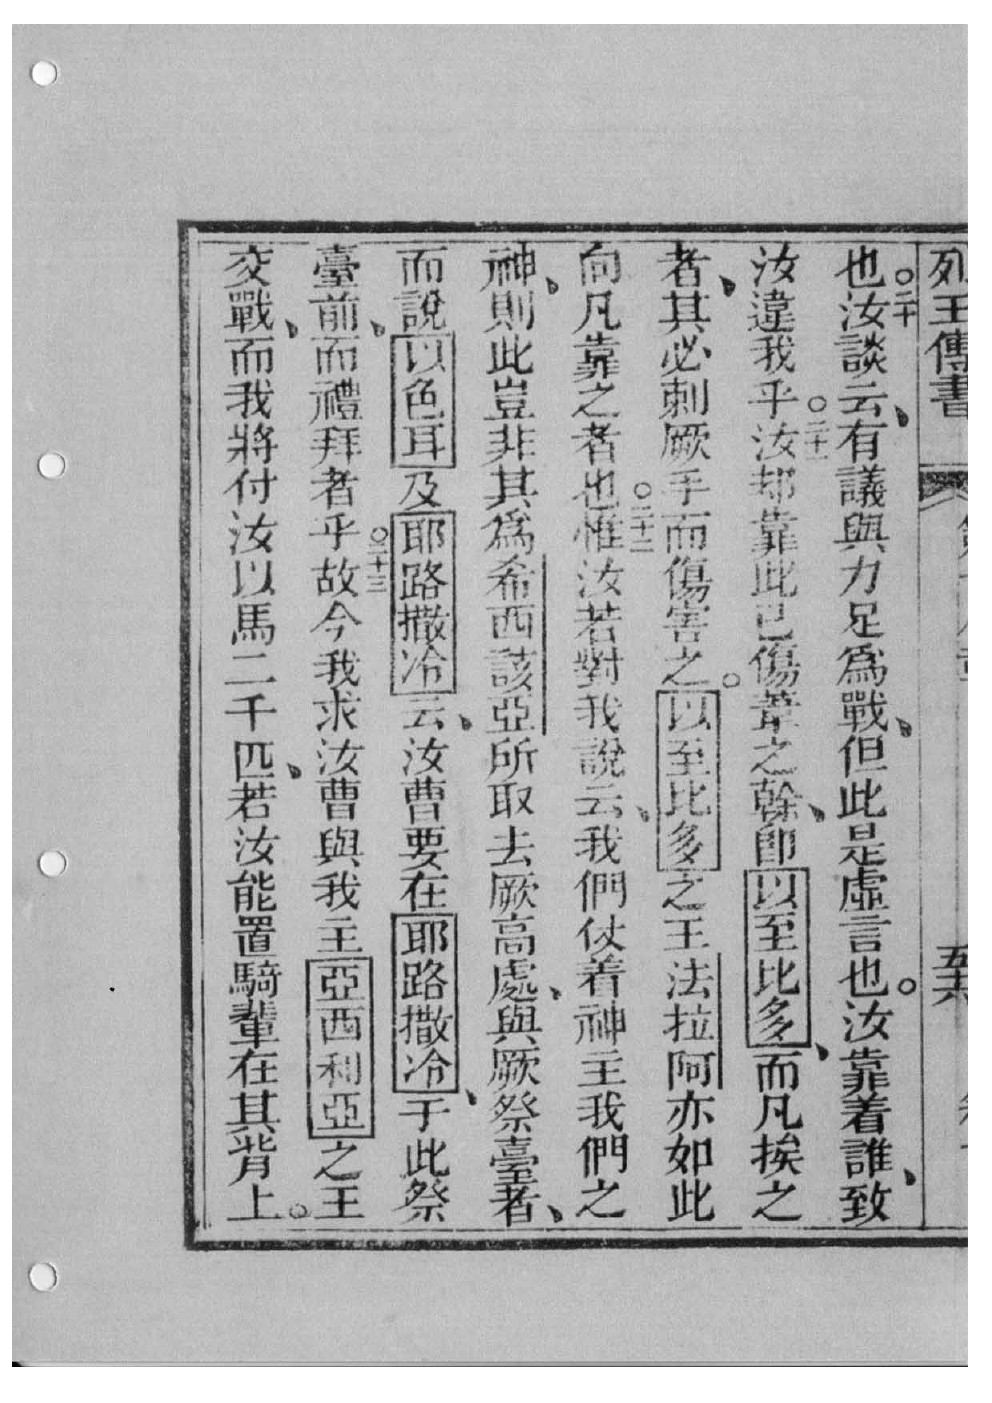 列王傳書 五六
也○二十汝談云、有議與力足爲戰、但此是虛言也。汝靠着誰、致
汝違我乎○二十一汝却靠此已傷葦之幹、卽以至比多、而凡挨之
者、其必刺厥手而傷害之。以至比多之王法拉阿亦如此
向凡靠之者也○二十二惟汝若對我說云、我們仗着神主我們之
神、則此豈非其爲希西該亞所取去厥高處、與厥祭臺者、
而說以色耳及耶路撒冷云、汝曹要在耶路撒冷、于此祭
臺前、而禮拜者乎○二十三故今我求汝曹與我主亞西利亞之王
交戰、而我將付汝以馬二千匹、若汝能置騎輩在其背上。